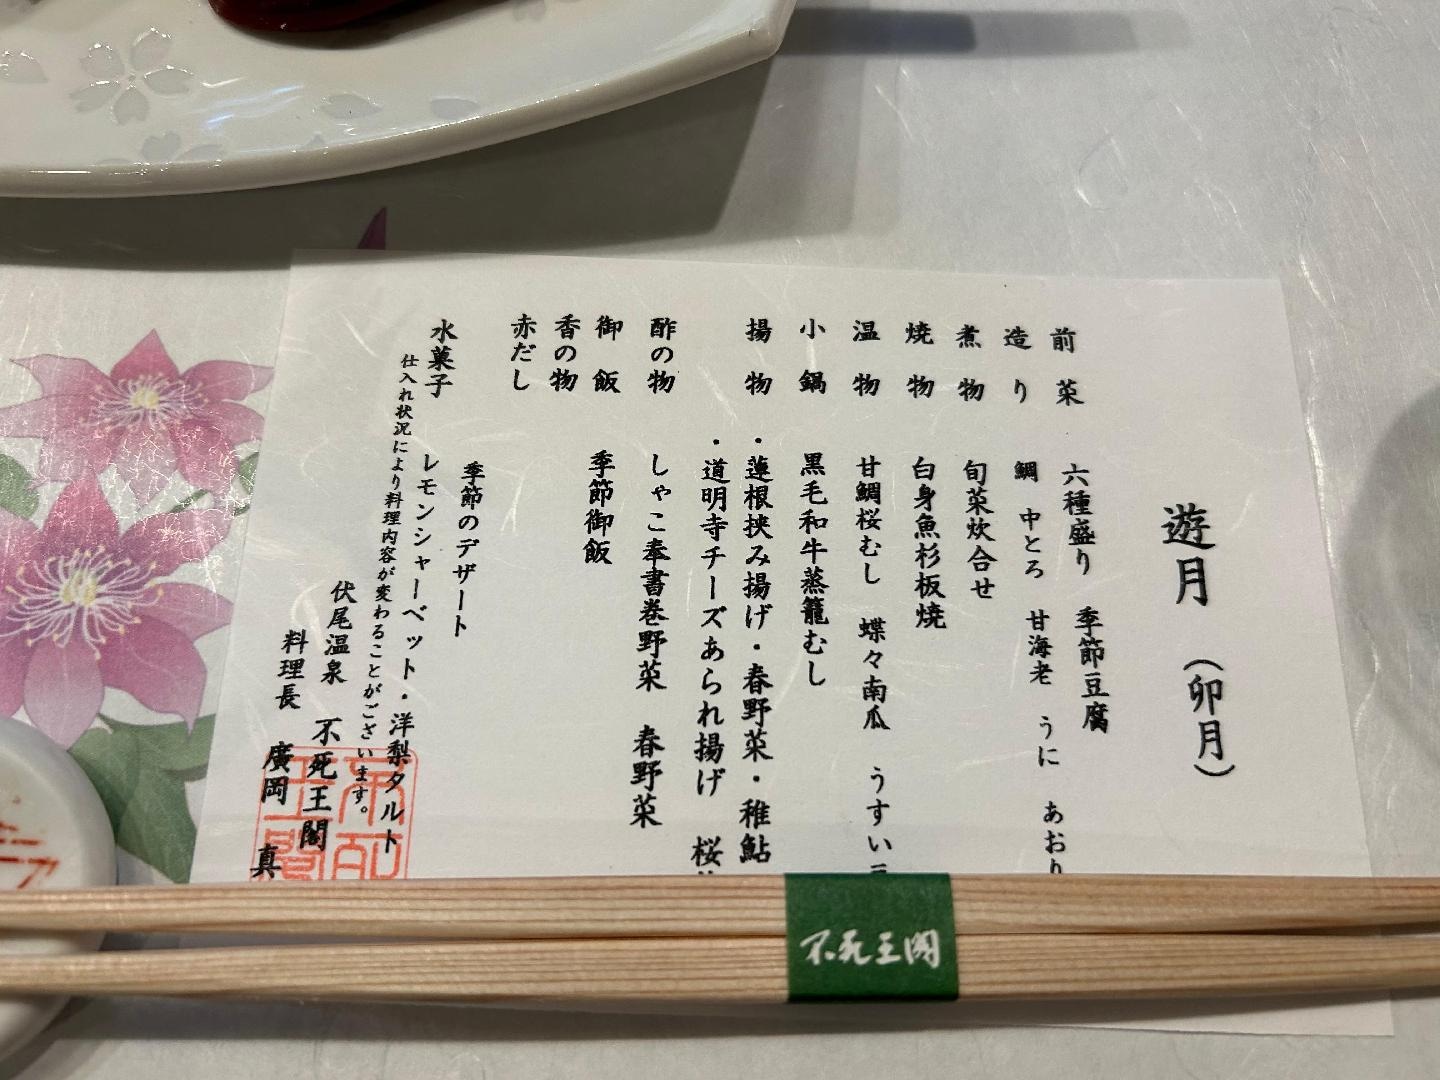 遊月 (卯月)
前菜 六種盛り 季節豆腐
造り 鯛 中とろ 甘海老 うに あおり
煮物 旬菜炊合せ
焼物 白身魚杉板焼
温物 甘鯛桜むし 蝶々南瓜 うすい
小鍋 黒毛和牛蒸籠むし
揚物 ・蓮根挟み揚げ・春野菜・稚鮎
・道明寺チーズあられ揚げ 桜
酢の物 しゃこ奉書巻野菜 春野菜
御飯 季節御飯
香の物
赤だし
季節のデザート
水菓子 レモンシャーベット・洋梨タルト
仕入れ状況により料理内容が変わることがございます。
伏尾温泉 不死王閣
料理長 廣岡 真
不死王閣